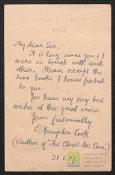 My dear Sir,
It is long since you & I
were in touch with each
other. Please accept the
two books I have posted
to you.
You have my very best
wishes at this great crisis.
Yours fraternally,
E. Hampden-Cook
(Author of "The Christ Has Come")